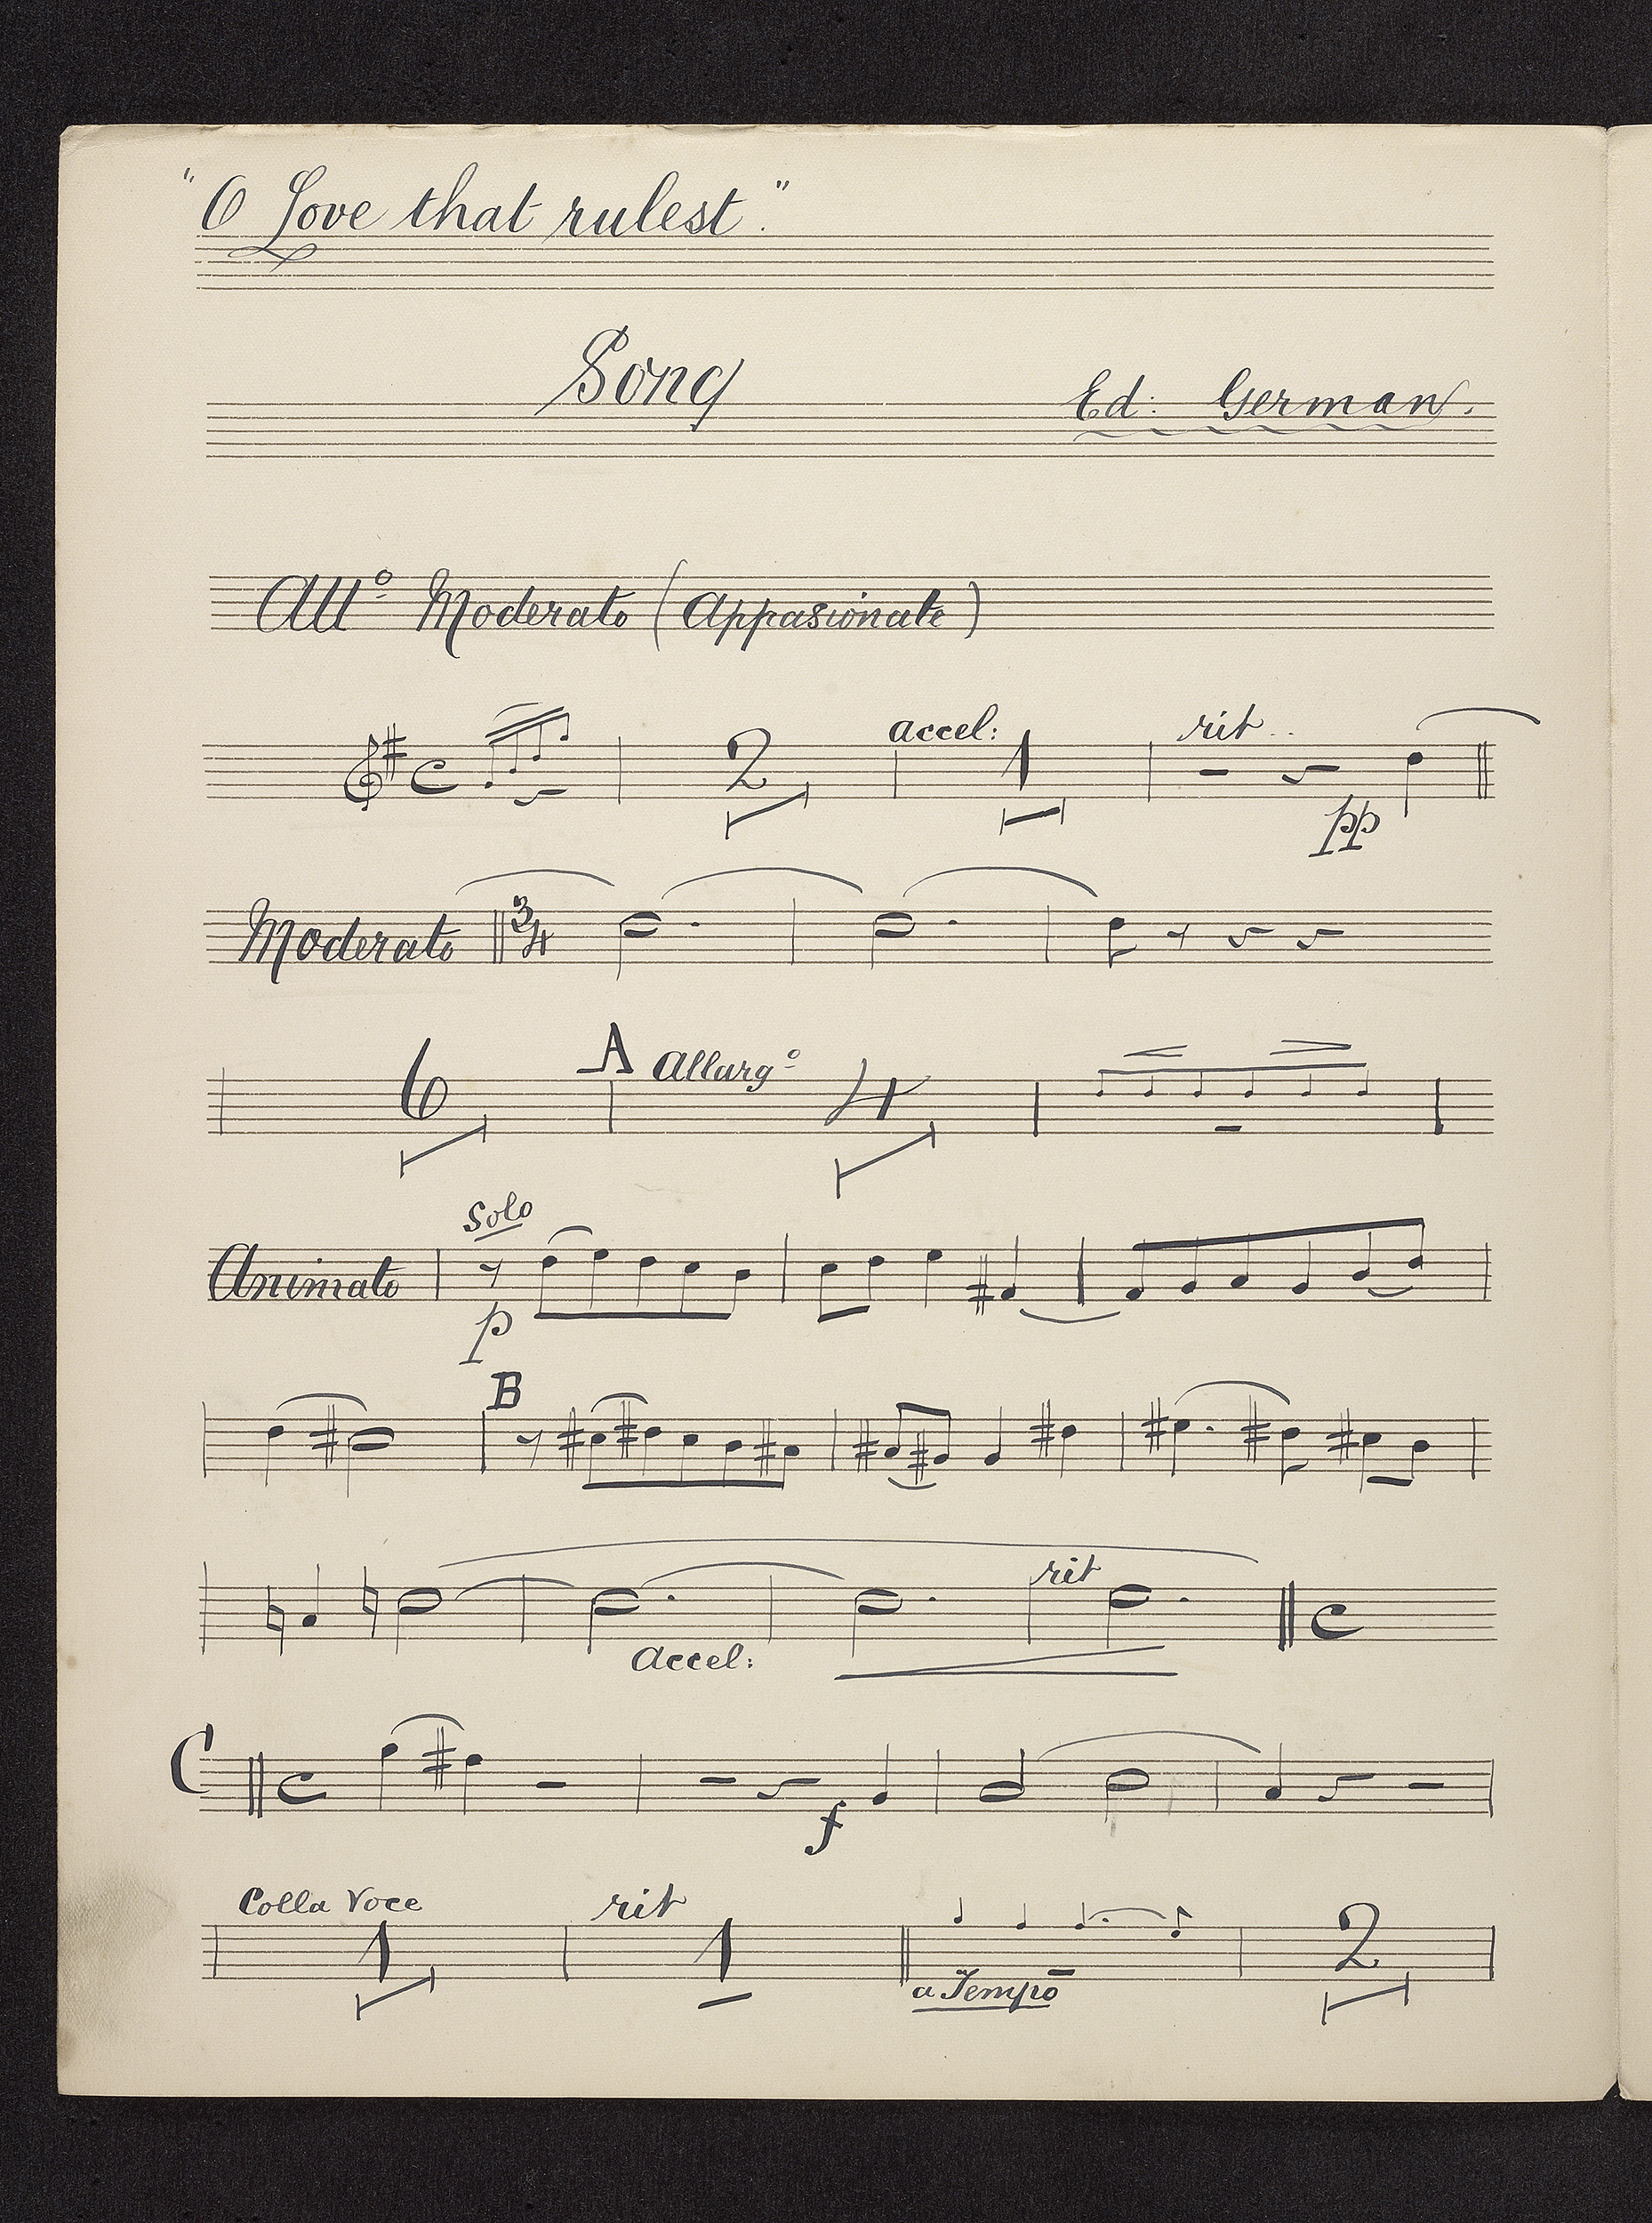 "O Love that rulest."
Song
Ed: German.
Allº Moderato (Appasionate)
accel: rit..
2 1
pp
Moderato 3/4
A Allargº
6 4
Solo
Animato
p
B
rit
accel:
C
f
Colla Voce rit
1 1 2
a Tempo